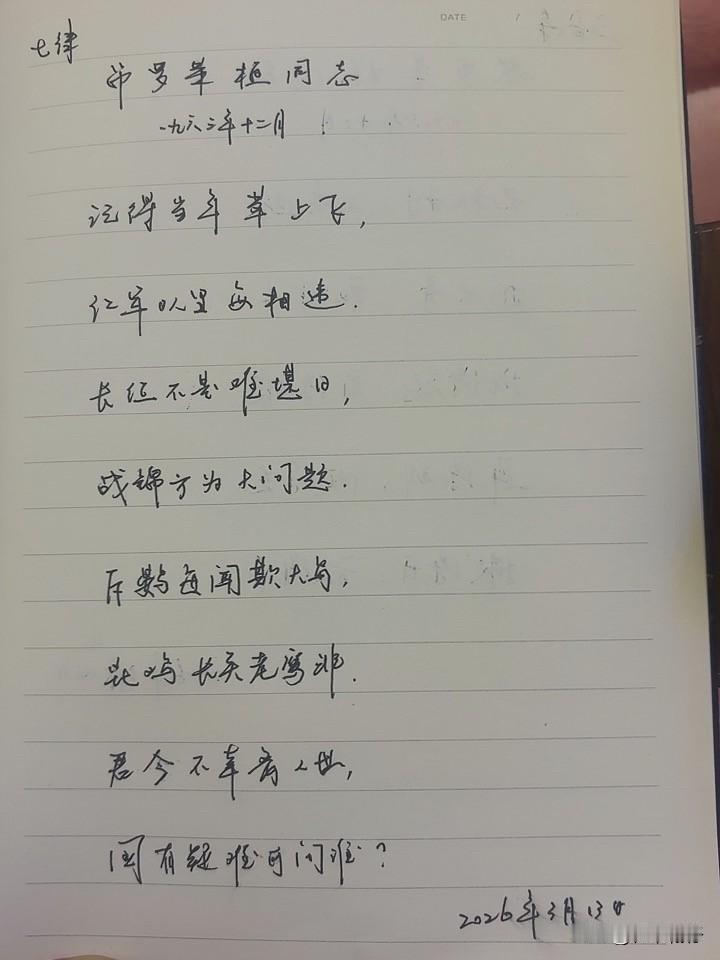 DATE /
七律
吊罗荣桓同志
一九六三年十二月
记得当年草上飞，
红军队里每相违．
长征不是难堪日，
战锦方为大问题．
斥鷃每闻欺大鸟，
昆鸡长笑老鹰非．
君今不幸离人世，
国有疑难可问谁？
2026年3月13日